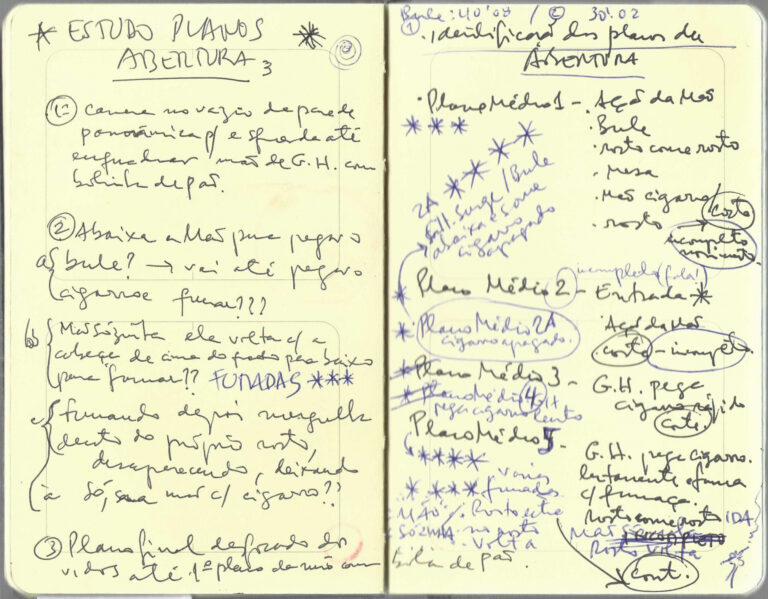 * ESTUDO PLANOS *
ABERTURA 3
1) Camera no vazio da parede
panorâmica p/ esquerda até
enquadrar mão de G.H. com
bolinha de pão.
2 Abaixa a Mão para pegar o
a) bule? → vai até pegar o
cigarro e fumar???
b) Mão sózinha ela volta c/ a
cabeça de cima do quadro para baixo
para fumar?? FUMADAS ***
Fumando depois mergulha
dentro do próprio rosto,
desaparecendo, deixando
só, sua mão c/ cigarro??
3 Plano final de fora do
vidros até 1º plano da mão com
Bule: 40'08 / 2 30'.02
1 . Identificação dos planos da
ABERTURA
. Plano Médio 1 - . Ação da Mão
* * *
. Bule
. rosto come rosto
. Mesa
. Mão cigarro / corte
. rosto
incompleto
movimento
2A * * * * *
G.H. surge / Bule
abaixa e some
cigarro
apagado
* Plano Médio 2 - Entrada *
incompleto (fala!)
* Plano Médio 2A
cigarro apagado.
Ação da Mão
. corte - incompleto.
* Plano Médio 3 - G.H. pega
cigarro rápido
corte.
* Plano Médio 4 G.H
pega cigarro lento
Plano Médio 5 -
*****
G.H. pega cigarro.
lentamente e fuma
c/ fumaça.
* *** várias
fumadas
MÃO / Rosto entra
SÓZINHA . no rosto
. Volta
Rosto come rosto IDA
Mão Só
Rosto volta
bolinha de pão.
cont.